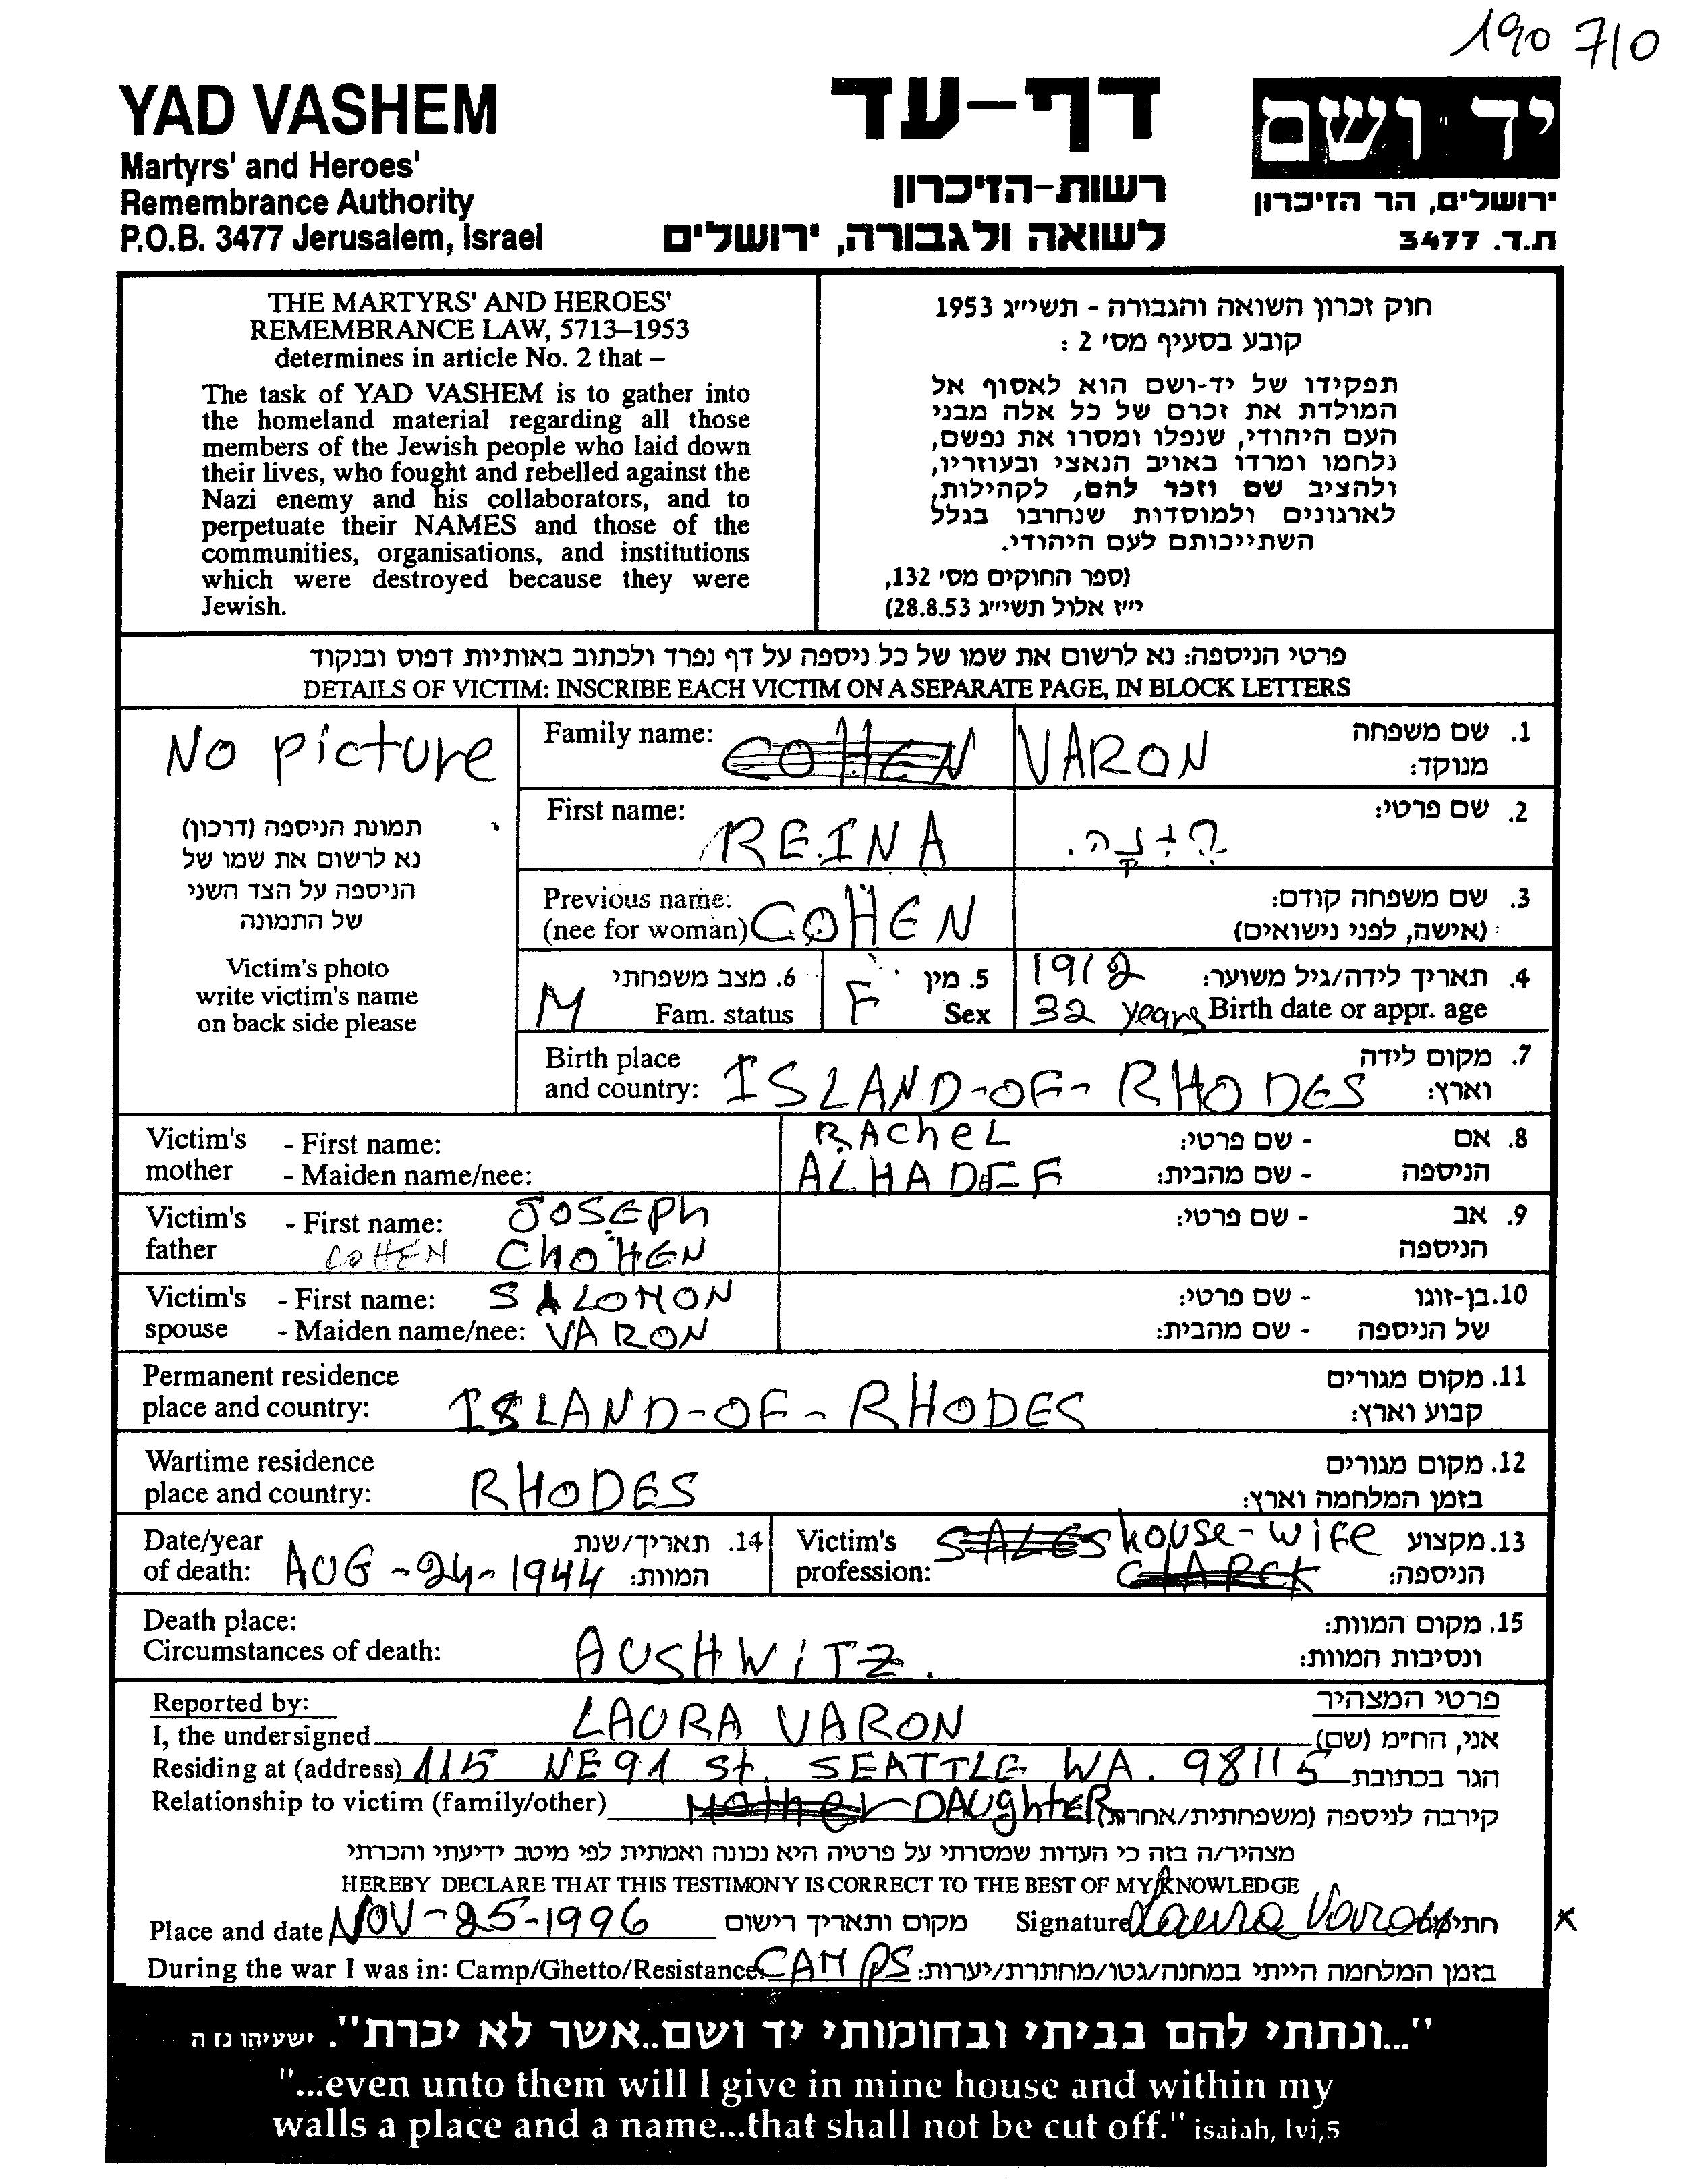 190 710
YAD VASHEM
Martyrs' and Heroes'
Remembrance Authority
P.O.B. 3477 Jerusalem, Israel
דף-עד
רשות-הזיכרון
לשואה ולגבורה, ירושלים
יד ושם
ירושלים, הר הזיכרון
ת.ד. 3477
THE MARTYRS' AND HEROES'
REMEMBRANCE LAW, 5713–1953
determines in article No. 2 that –
The task of YAD VASHEM is to gather into
the homeland material regarding all those
members of the Jewish people who laid down
their lives, who fought and rebelled against the
Nazi enemy and his collaborators, and to
perpetuate their NAMES and those of the
communities, organisations, and institutions
which were destroyed because they were
Jewish.
חוק זכרון השואה והגבורה - תשי״ג 1953
קובע בסעיף מס' 2 :
תפקידו של יד-ושם הוא לאסוף אל
המולדת את זכרם של כל אלה מבני
העם היהודי, שנפלו ומסרו את נפשם,
נלחמו ומרדו באויב הנאצי ובעוזריו,
ולהציב שם וזכר להם, לקהילות,
לארגונים ולמוסדות שנחרבו בגלל
השתייכותם לעם היהודי.
(ספר החוקים מס' 132,
י״ז אלול תשי״ג 28.8.53)
פרטי הניספה: נא לרשום את שמו של כל ניספה על דף נפרד ולכתוב באותיות דפוס ובנקוד
DETAILS OF VICTIM: INSCRIBE EACH VICTIM ON A SEPARATE PAGE, IN BLOCK LETTERS
No picture
תמונת הניספה (דרכון)
נא לרשום את שמו של
הניספה על הצד השני
של התמונה
Victim's photo
write victim's name
on back side please
Family name: COHEN VARON 1. שם משפחה
מנוקד:
First name: REINA 2. שם פרטי:
Previous name: 3. שם משפחה קודם:
(nee for woman) COHEN (אישה, לפני נישואים)
M 6. מצב משפחתי F 5. מין 1912 4. תאריך לידה/גיל משוער:
Fam. status Sex 32 years Birth date or appr. age
Birth place 7. מקום לידה
and country: ISLAND-OF-RHODES וארץ:
Victim's - First name: RACHEL - שם פרטי: 8. אם
mother - Maiden name/nee: ALHADEF - שם מהבית: הניספה
Victim's - First name: JOSEPH - שם פרטי: 9. אב
father COHEN CHOHEN הניספה
Victim's - First name: SALOMON - שם פרטי: 10. בן-זוגו
spouse - Maiden name/nee: VARON - שם מהבית: של הניספה
Permanent residence 11. מקום מגורים
place and country: ISLAND-OF-RHODES קבוע וארץ:
Wartime residence 12. מקום מגורים
place and country: RHODES בזמן המלחמה וארץ:
Date/year 14. תאריך/שנת Victim's SALES house-wife 13. מקצוע
of death: AUG-24-1944 המוות: profession: CLARCK הניספה:
Death place: 15. מקום המוות:
Circumstances of death: AUSHWITZ. ונסיבות המוות:
Reported by: פרטי המצהיר
I, the undersigned LAURA VARON אני, הח״מ (שם)
Residing at (address) 115 NE 91 St. SEATTLE WA. 98115 הגר בכתובת
Relationship to victim (family/other) Mother DAUghtER קירבה לניספה (משפחתית/אחרת)
מצהיר/ה בזה כי העדות שמסרתי על פרטיה היא נכונה ואמתית לפי מיטב ידיעתי והכרתי
HEREBY DECLARE THAT THIS TESTIMONY IS CORRECT TO THE BEST OF MY KNOWLEDGE
Place and date NOV-25-1996 מקום ותאריך רישום Signature Laura Varon x
During the war I was in: Camp/Ghetto/Resistance: CAMPS בזמן המלחמה הייתי במחנה/גטו/מחתרת/יערות:
"...ונתתי להם בביתי ובחומותי יד ושם..אשר לא יכרת". ישעיהו נז ה
"...even unto them will I give in mine house and within my
walls a place and a name...that shall not be cut off." isaiah, lvi,5